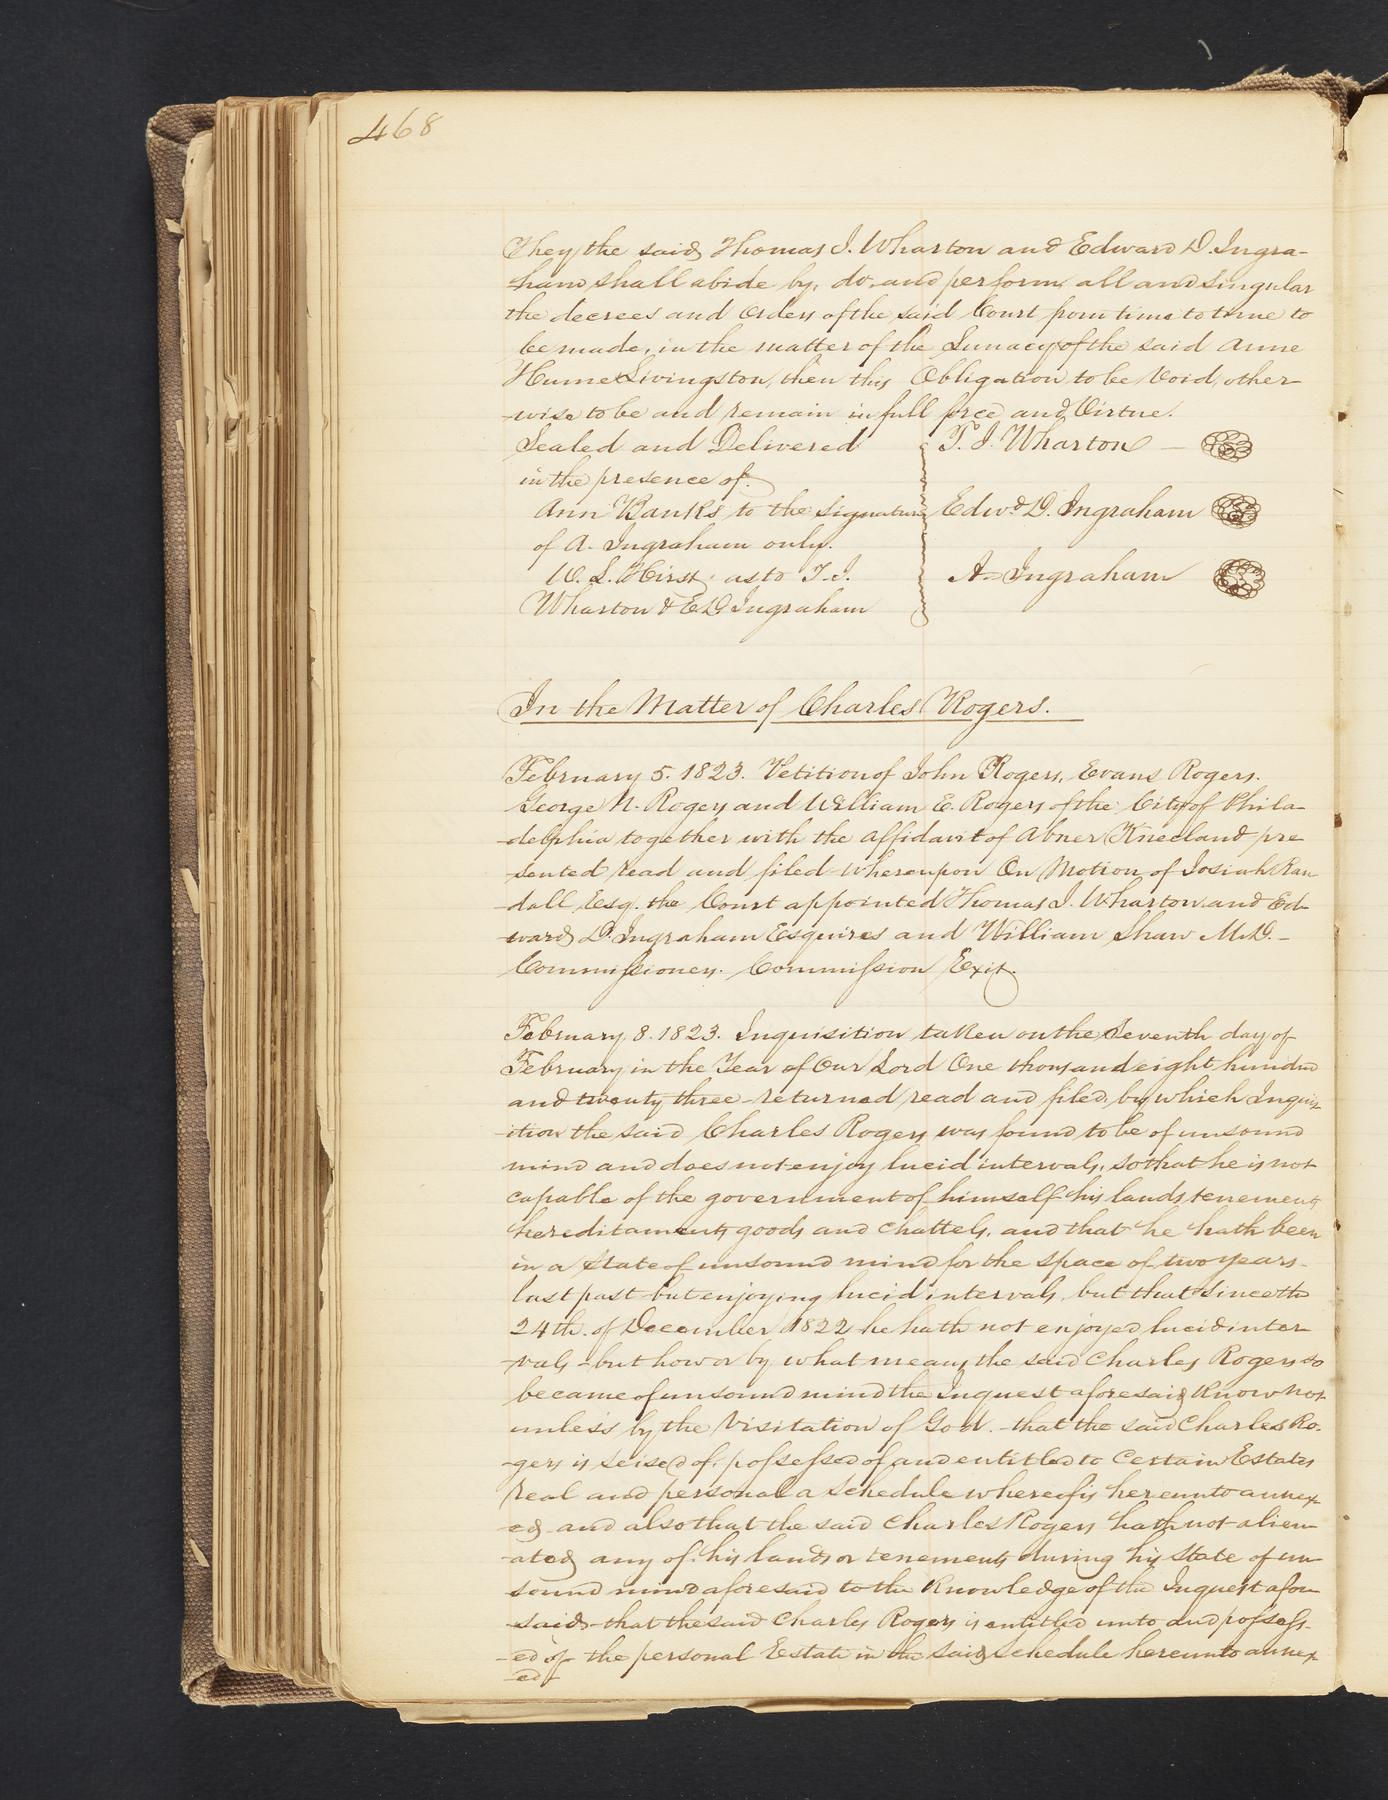 468
They the said Thomas I. Wharton and Edward D. Ingra-
ham shall abide by, do, and perform all and Singular
the decrees and Orders of the said Court from time to time to
be made, in the matter of the Lunacy of the said Anne
Hume Livingston, then this Obligation to be Void, other-
-wise to be and remain in full force and Virtue.
Sealed and Delivered
in the presence of.
Ann Banks to the Signature
of A. Ingraham only.
W. L. Hirst, as to T. I.
Wharton & E D Ingraham
T. I. Wharton —
Edwd. D. Ingraham
A. Ingraham
In the Matter of Charles Rogers.
February 5. 1823. Petition of John Rogers, Evans Rogers.
George N. Rogers and William E. Rogers of the City of Phila-
-delphia together with the affidavit of Abner Kneeland pre
sented read and filed whereupon On Motion of Josiah Ran
-dall Esq. the Court appointed Thomas I. Wharton and Ed-
-ward D. Ingraham Esquires and William Shaw M.D. -
Commissioners. Commission Exit.
February 8. 1823. Inquisition taken on the Seventh day of
February in the Year of Our Lord One thousand eight hundred
and twenty three - returned read and filed, by which Inquis-
-ition the said Charles Rogers was found to be of unsound
mind and does not enjoy lucid intervals, so that he is not
capable of the government of himself his lands tenements
hereditaments goods and chattels, and that he hath been
in a State of unsound mind for the space of two years -
last past but enjoying lucid intervals but that since the
24th. of December 1822 he hath not enjoyed lucid inter
-vals - but how or by what means the said Charles Rogers so
became of unsound mind the Inquest aforesaid Know not
unless by the Visitation of God. - that the said Charles Ro.
-gers is seised of, possessed of and entitled to Certain Estates
real and personal a Schedule whereof is hereunto annex-
-ed, and also that the said Charles Rogers hath not alien
-ated any of his lands or tenements during his State of un
sound mind aforesaid to the Knowledge of the Inquest afore
-said - that the said Charles Rogers is entitled unto and possess-
-ed of the personal Estate in the said Schedule hereunto annex
-ed